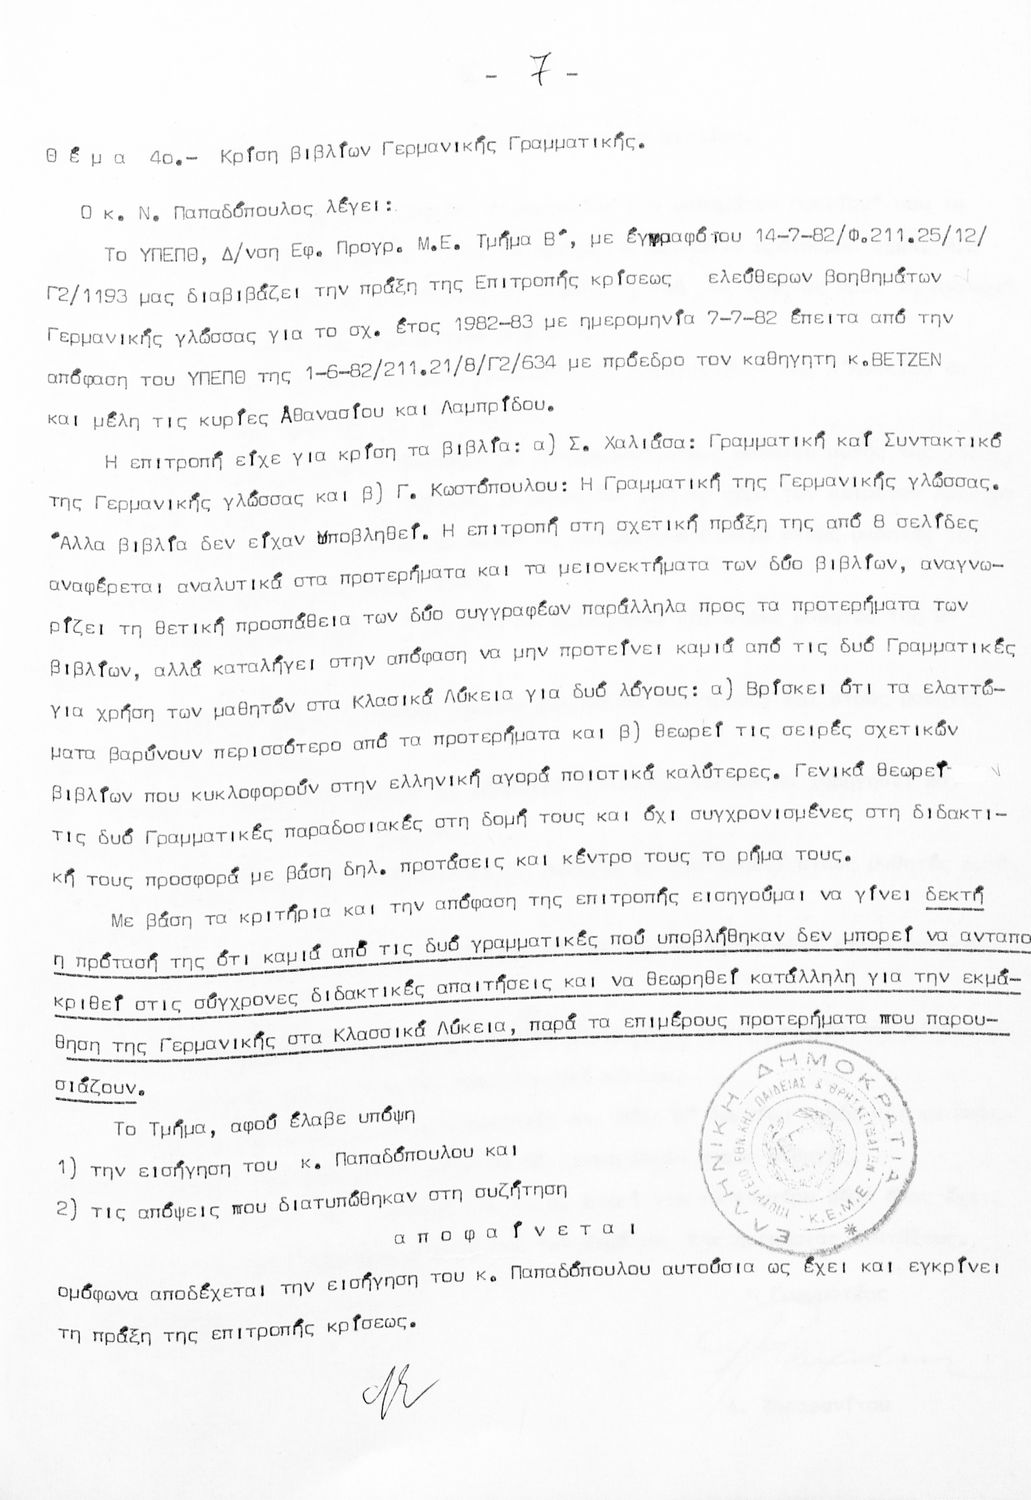 - 7 -
Θ έ μ α 4ο.- Κρίση βιβλίων Γερμανικής Γραμματικής.
Ο κ. Ν. Παπαδόπουλος λέγει:
Το ΥΠΕΠΘ, Δ/νση Εφ. Προγρ. Μ.Ε. Τμήμα Β΄, με έγγραφό του 14-7-82/Φ.211.25/12/
Γ2/1193 μας διαβιβάζει την πράξη της Επιτροπής κρίσεως ελεύθερων βοηθημάτων
Γερμανικής γλώσσας για το σχ. έτος 1982-83 με ημερομηνία 7-7-82 έπειτα από την
απόφαση του ΥΠΕΠΘ της 1-6-82/211.21/8/Γ2/634 με πρόεδρο τον καθηγητη κ.ΒΕΤΖΕΝ
και μέλη τις κυρίες Αθανασίου και Λαμπρίδου.
Η επιτροπή είχε για κρίση τα βιβλία: α) Σ. Χαλιάσα: Γραμματική καί Συντακτικό
της Γερμανικής γλώσσας και β) Γ. Κωστόπουλου: Η Γραμματική της Γερμανικής γλώσσας.
Άλλα βιβλία δεν είχαν υποβληθεί. Η επιτροπή στη σχετική πράξη της από 8 σελίδες
αναφέρεται αναλυτικά στα προτερήματα και τα μειονεκτήματα των δύο βιβλίων, αναγνω-
ρίζει τη θετική προσπάθεια των δύο συγγραφέων παράλληλα προς τα προτερήματα των
βιβλίων, αλλά καταλήγει στην απόφαση να μην προτείνει καμιά από τις δυό Γραμματικές
για χρήση των μαθητών στα Κλασικά Λύκεια για δυό λόγους: α) Βρίσκει ότι τα ελαττώ-
ματα βαρύνουν περισσότερο από τα προτερήματα και β) θεωρεί τις σειρές σχετικών
βιβλίων που κυκλοφορούν στην ελληνική αγορά ποιοτικά καλύτερες. Γενικά θεωρεί
τις δυό Γραμματικές παραδοσιακές στη δομή τους και όχι συγχρονισμένες στη διδακτι-
κή τους προσφορά με βάση δηλ. προτάσεις και κέντρο τους το ρήμα τους.
Με βάση τα κριτήρια και την απόφαση της επιτροπής εισηγούμαι να γίνει δεκτή
η πρόταση της ότι καμιά από τις δυό γραμματικές πού υποβλήθηκαν δεν μπορεί να ανταπο
κριθεί στις σύγχρονες διδακτικές απαιτήσεις και να θεωρηθεί κατάλληλη για την εκμά-
θηση της Γερμανικής στα Κλασσικά Λύκεια, παρά τα επιμέρους προτερήματα που παρου-
σιάζουν.
Το Τμήμα, αφού έλαβε υπόψη
1) την εισήγηση του κ. Παπαδόπουλου και
2) τις απόψεις που διατυπώθηκαν στη συζήτηση
α π ο φ α ί ν ε τ α ι
ομόφωνα αποδέχεται την εισήγηση του κ. Παπαδόπουλου αυτούσια ως έχει και εγκρίνει
τη πράξη της επιτροπής κρίσεως.
ΕΛΛΗΝΙΚΗ ΔΗΜΟΚΡΑΤΙΑ
ΥΠΟΥΡΓΕΙΟ ΕΘΝΙΚΗΣ ΠΑΙΔΕΙΑΣ & ΘΡΗΣΚΕΥΜΑΤΩΝ
Κ.Ε.Μ.Ε.